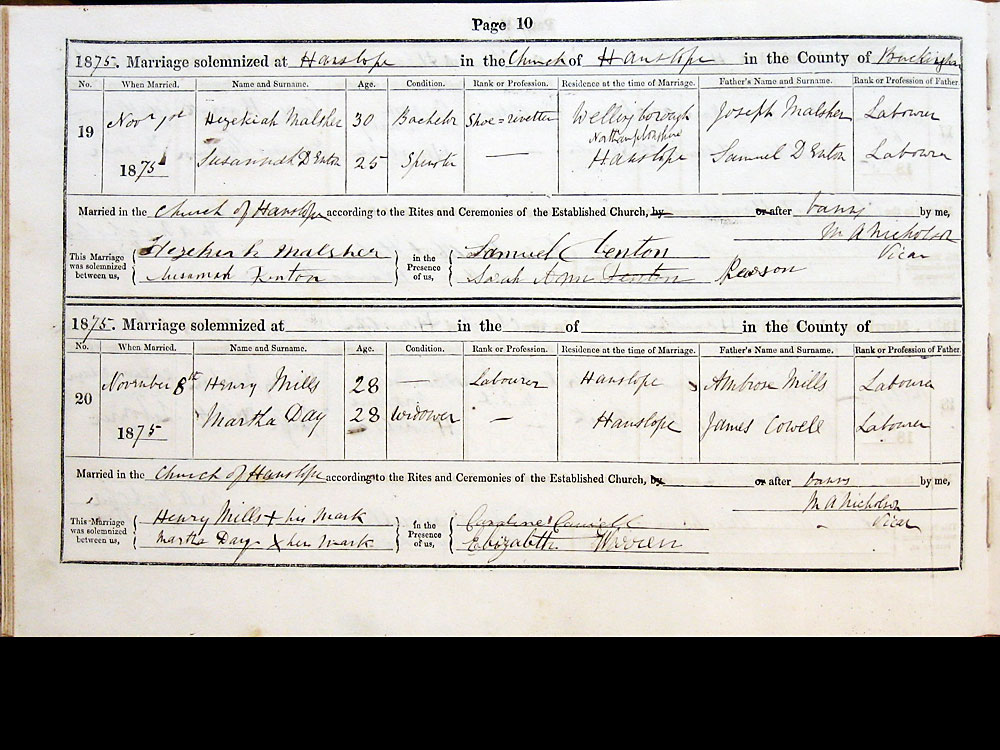 Page 10
1875. Marriage solemnized at Hanslope in the Church of Hanslope in the County of Buckingham
No. When Married. Name and Surname. Age. Condition. Rank or Profession. Residence at the time of Marriage. Father's Name and Surname. Rank or Profession of Father.
19 Novr 1st Hezekiah Malsher 30 Bachelor Shoe=rivetter Wellingborough Northamptonshire Joseph Malsher Labourer
1875 Susannah Denton 25 Spinster — Hanslope Samuel Denton Labourer
Married in the Church of Hanslope according to the Rites and Ceremonies of the Established Church, by or after banns by me,
M A Nicholson
Vicar
This Marriage was solemnized between us, Hezekiah Malsher in the Presence of us, Samuel
Susannah Sarah Ann Pearson
1875. Marriage solemnized at in the of in the County of
No. When Married. Name and Surname. Age. Condition. Rank or Profession. Residence at the time of Marriage. Father's Name and Surname. Rank or Profession of Father.
20 November 8th Henry Mills 28 — Labourer Hanslope Ambrose Mills Labourer
1875 Martha Day 28 Widower — Hanslope James Cowell Labourer
Married in the Church of Hanslope according to the Rites and Ceremonies of the Established Church, by or after banns by me,
M A Nicholson
Vicar
This Marriage was solemnized between us, Henry Mills X his Mark In the Presence of us, Caroline
Martha Day X her Mark Elizabeth Warren